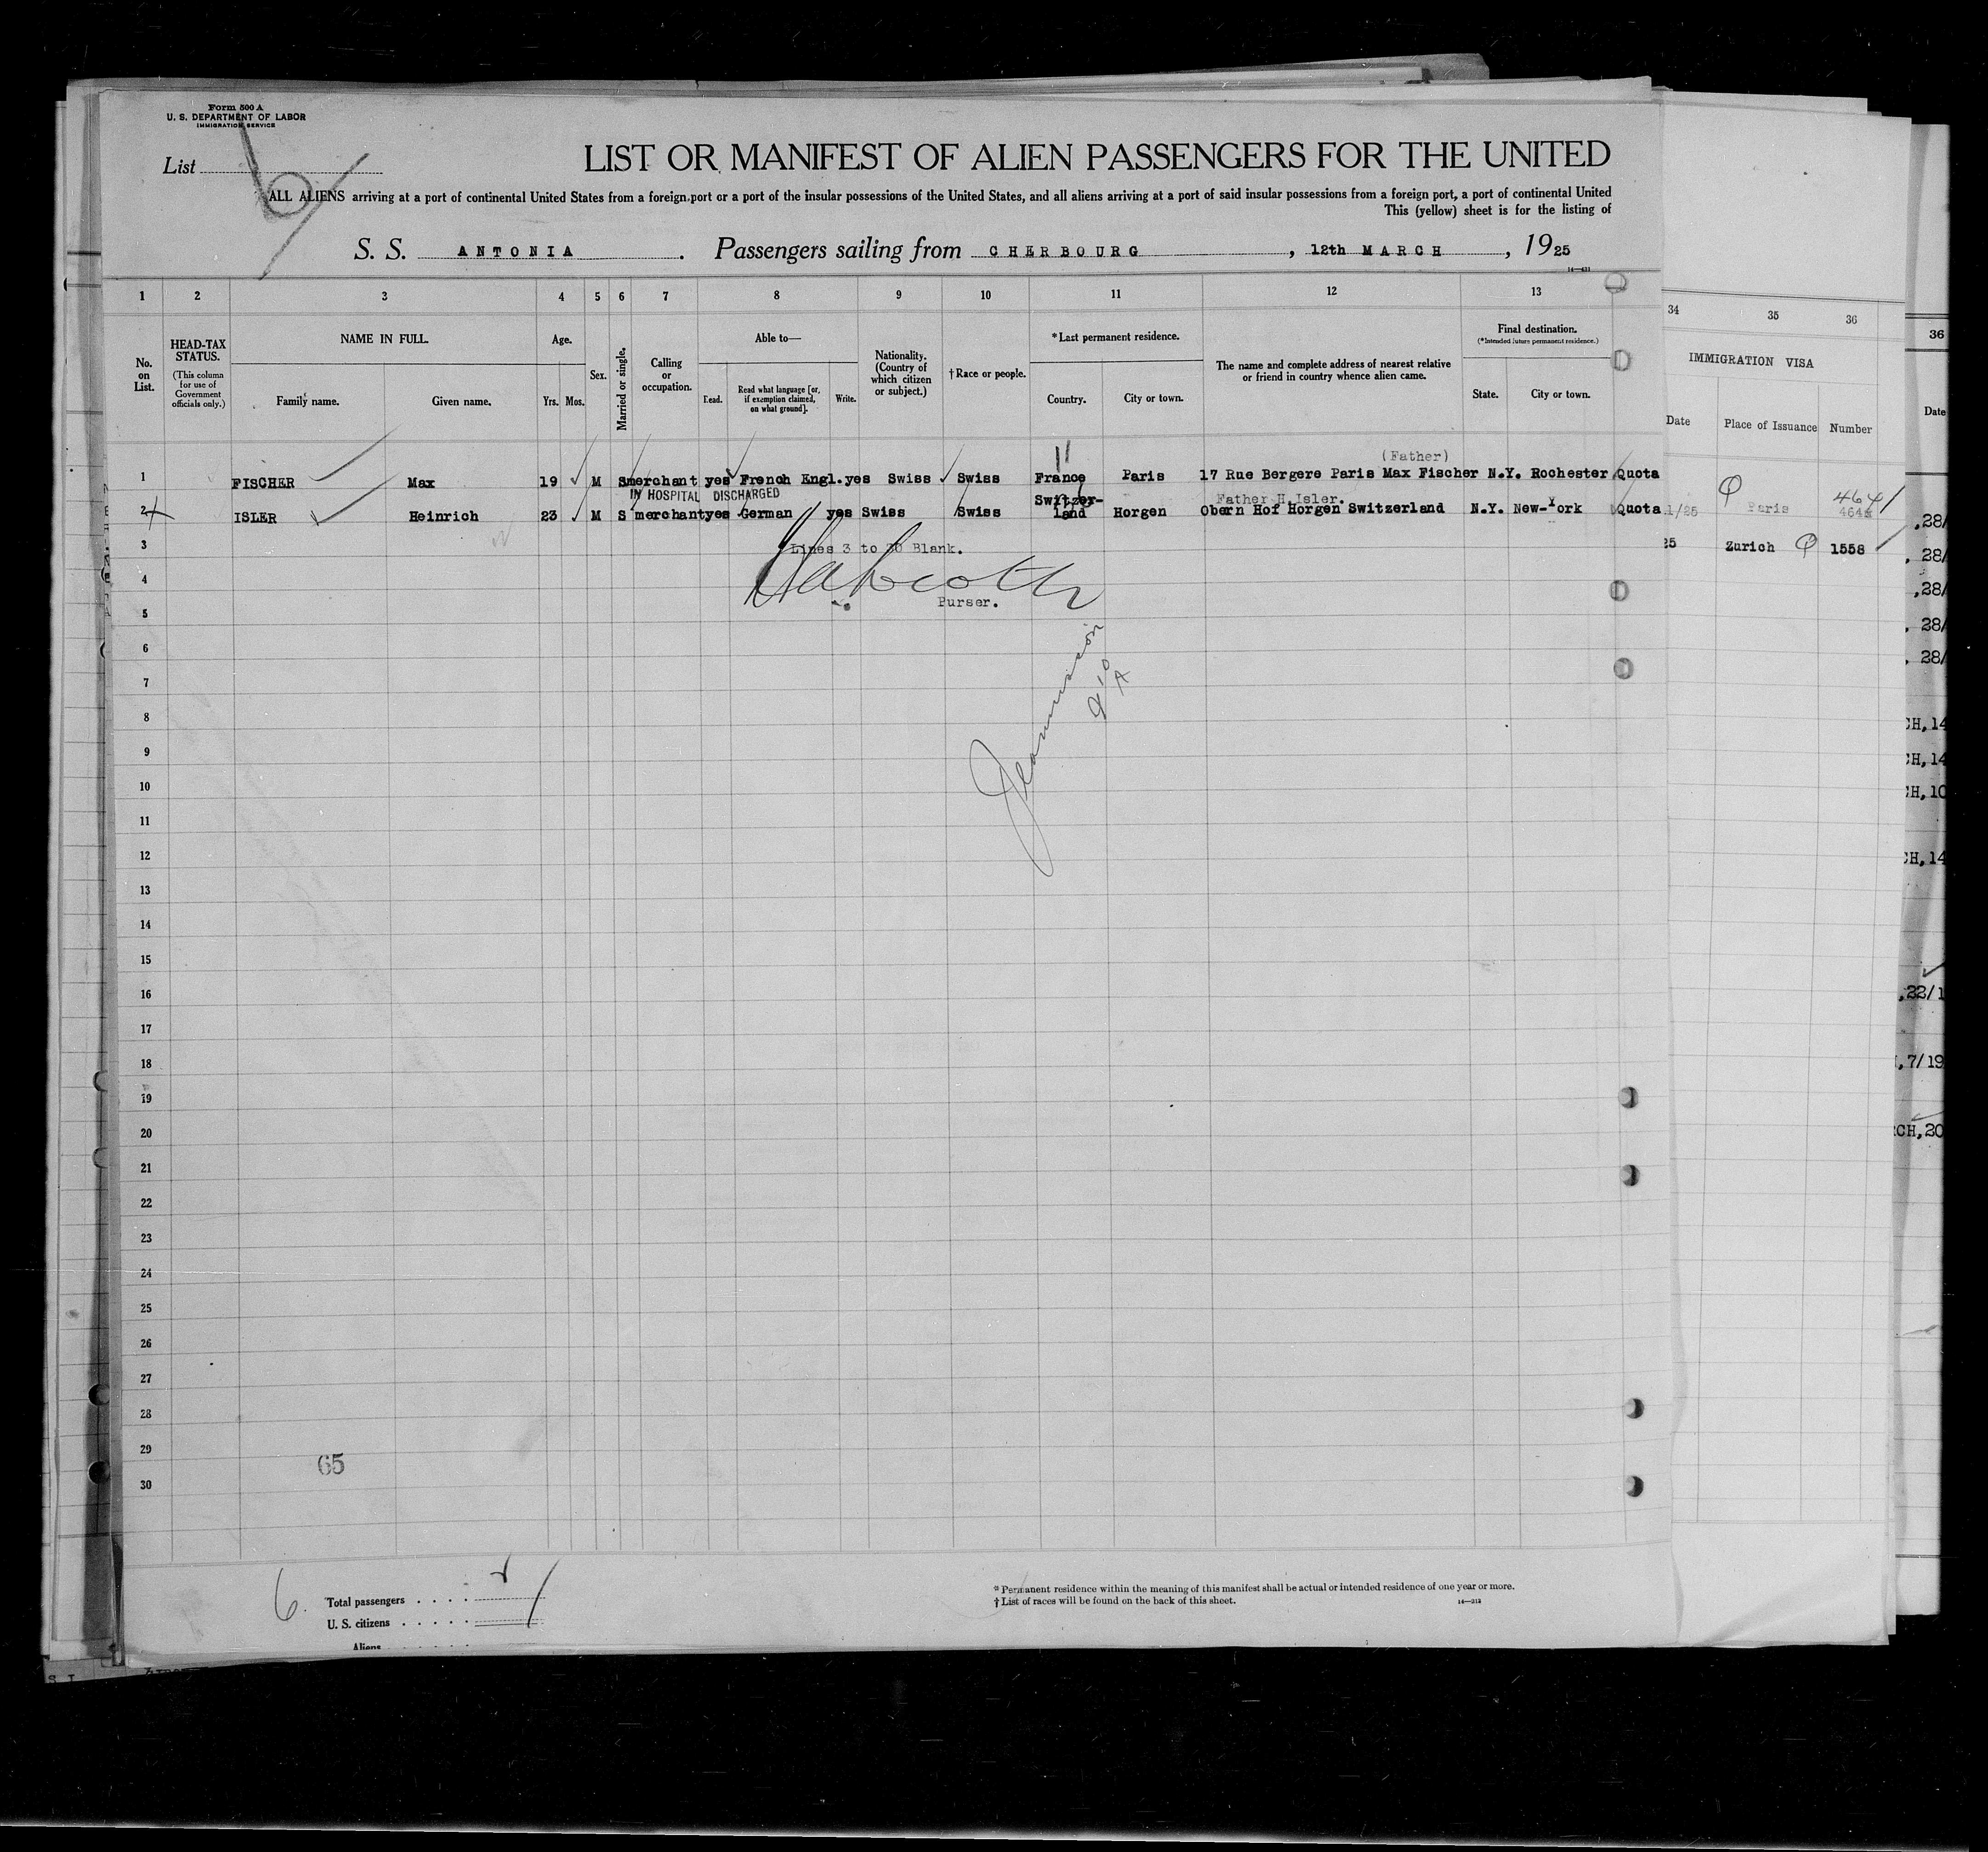 Form 500 A
U. S. DEPARTMENT OF LABOR
IMMIGRATION SERVICE
List
LIST OR MANIFEST OF ALIEN PASSENGERS FOR THE UNITED
ALL ALIENS arriving at a port of continental United States from a foreign port or a port of the insular possessions of the United States, and all aliens arriving at a port of said insular possessions from a foreign port, a port of continental United
This (yellow) sheet is for the listing of
S. S. ANTONIA . Passengers sailing from CHERBOURG , 12th MARCH , 1925
1 2 3 4 5 6 7 8 9 10 11 12 13
34 35 36
36
No. on List.
HEAD-TAX STATUS.
(This column for use of Government officials only.)
NAME IN FULL.
Family name. Given name.
Age.
Yrs. Mos.
Sex.
Married or single.
Calling or occupation.
Able to—
Read. Read what language [or, if exemption claimed, on what ground]. Write.
Nationality. (Country of which citizen or subject.)
† Race or people.
* Last permanent residence.
Country. City or town.
The name and complete address of nearest relative or friend in country whence alien came.
Final destination.
(* Intended future permanent residence.)
State. City or town.
IMMIGRATION VISA
Date Place of Issuance Number
Date
(Father)
1 FISCHER Max 19 M S merchant yes French Engl. yes Swiss Swiss France Paris 17 Rue Bergere Paris Max Fischer N.Y. Rochester Quota
IN HOSPITAL DISCHARGED
Father H.Isler.
2 ISLER Heinrich 23 M S merchant yes German yes Swiss Swiss Switzer-land Horgen Obern Hof Horgen Switzerland N.Y. New-York Quota
1/25 Paris 464
25 Zurich 1558
3 Lines 3 to 30 Blank.
4
Purser.
5
6
7
8
9
10
11
12
13
14
15
16
17
18
19
20
21
22
23
24
25
26
27
28
29
65
30
,28/
, 28/
,28/
, 28/
, 28/
CH,14
CH,14
CH,10
CH,14
,22/1
,7/19
CH,20
6.
Total passengers
U. S. citizens
Aliens
* Permanent residence within the meaning of this manifest shall be actual or intended residence of one year or more.
† List of races will be found on the back of this sheet.